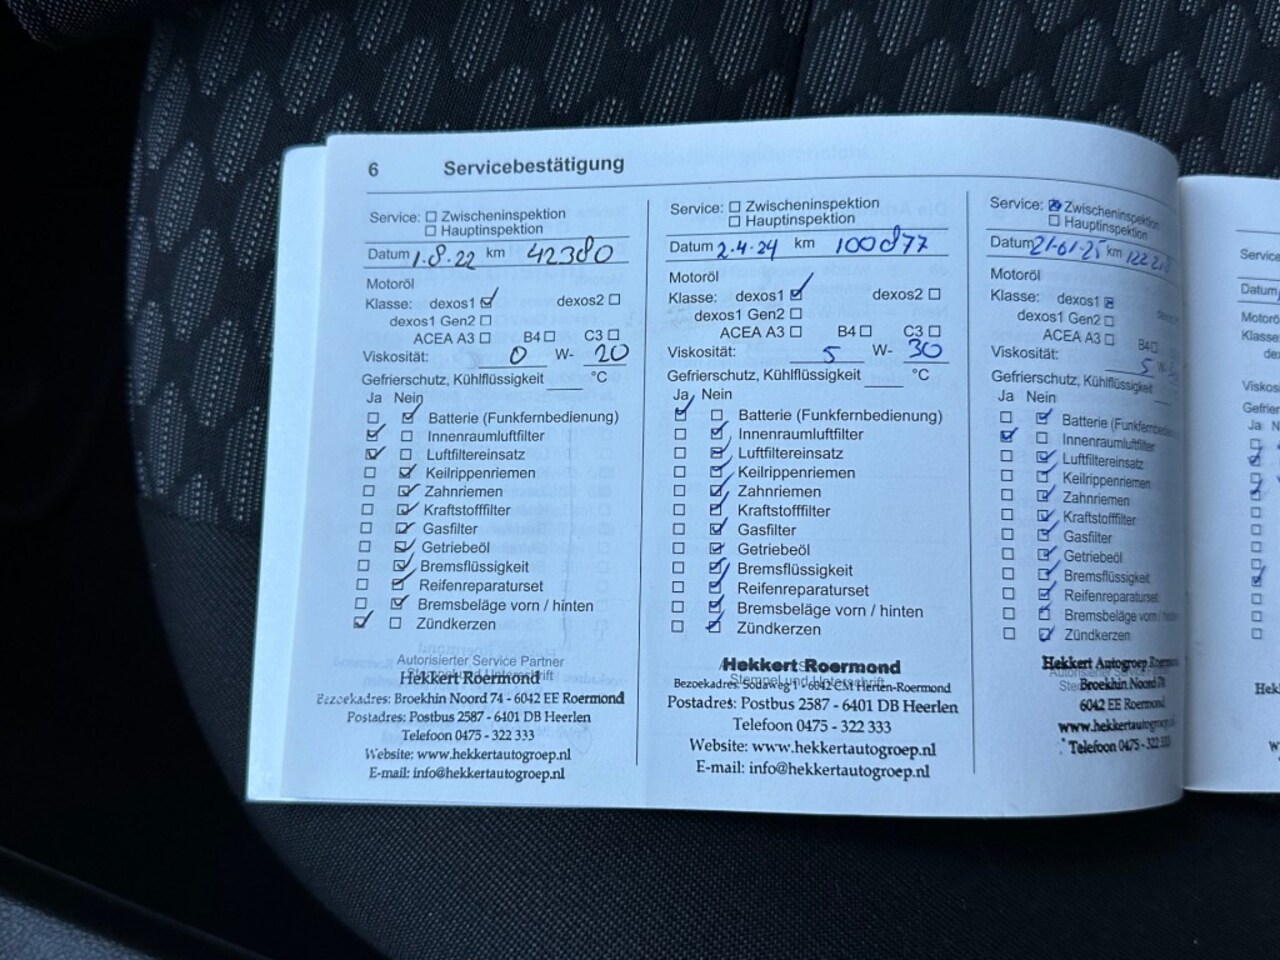 6 Servicebestätigung
Service: Zwischeninspektion
Hauptinspektion
Datum 1.8.22 km 42380
Motoröl
Klasse: dexos1 dexos2
dexos1 Gen2
ACEA A3 B4 C3
Viskosität: 0 W- 20
Gefrierschutz, Kühlflüssigkeit °C
Ja Nein
Batterie (Funkfernbedienung)
Innenraumluftfilter
Luftfiltereinsatz
Keilrippenriemen
Zahnriemen
Kraftstofffilter
Gasfilter
Getriebeöl
Bremsflüssigkeit
Reifenreparaturset
Bremsbeläge vorn / hinten
Zündkerzen
Autorisierter Service Partner
Hekkert Roermond
Bezoekadres: Broekhin Noord 74 - 6042 EE Roermond
Postadres: Postbus 2587 - 6401 DB Heerlen
Telefoon 0475 - 322 333
Website: www.hekkertautogroep.nl
E-mail: info@hekkertautogroep.nl
Service: Zwischeninspektion
Hauptinspektion
Datum 2.4.24 km 100877
Motoröl
Klasse: dexos1 dexos2
dexos1 Gen2
ACEA A3 B4 C3
Viskosität: 5 W- 30
Gefrierschutz, Kühlflüssigkeit °C
Ja Nein
Batterie (Funkfernbedienung)
Innenraumluftfilter
Luftfiltereinsatz
Keilrippenriemen
Zahnriemen
Kraftstofffilter
Gasfilter
Getriebeöl
Bremsflüssigkeit
Reifenreparaturset
Bremsbeläge vorn / hinten
Zündkerzen
Hekkert Roermond
Stempel und Unterschrift
Bezoekadres: Sodaweg 1 - 6042 CM Herten-Roermond
Postadres: Postbus 2587 - 6401 DB Heerlen
Telefoon 0475 - 322 333
Website: www.hekkertautogroep.nl
E-mail: info@hekkertautogroep.nl
Service: Zwischeninspektion
Hauptinspektion
Datum 21-01-25 km
Motoröl
Klasse: dexos1
dexos1 Gen2
ACEA A3 B4
Viskosität: 5 W-
Gefrierschutz, Kühlflüssigkeit
Ja Nein
Batterie
Innenraumluftfilter
Luftfiltereinsatz
Keilrippenriemen
Zahnriemen
Kraftstofffilter
Gasfilter
Getriebeöl
Bremsflüssigkeit
Reifenreparaturset
Bremsbeläge vorn / hinten
Zündkerzen
Hekkert Autogroep
Broekhin Noord 74
6042 EE Roermond
www.hekkertautogroep.nl
Telefoon 0475 - 322 333
Service
Datum
Ja